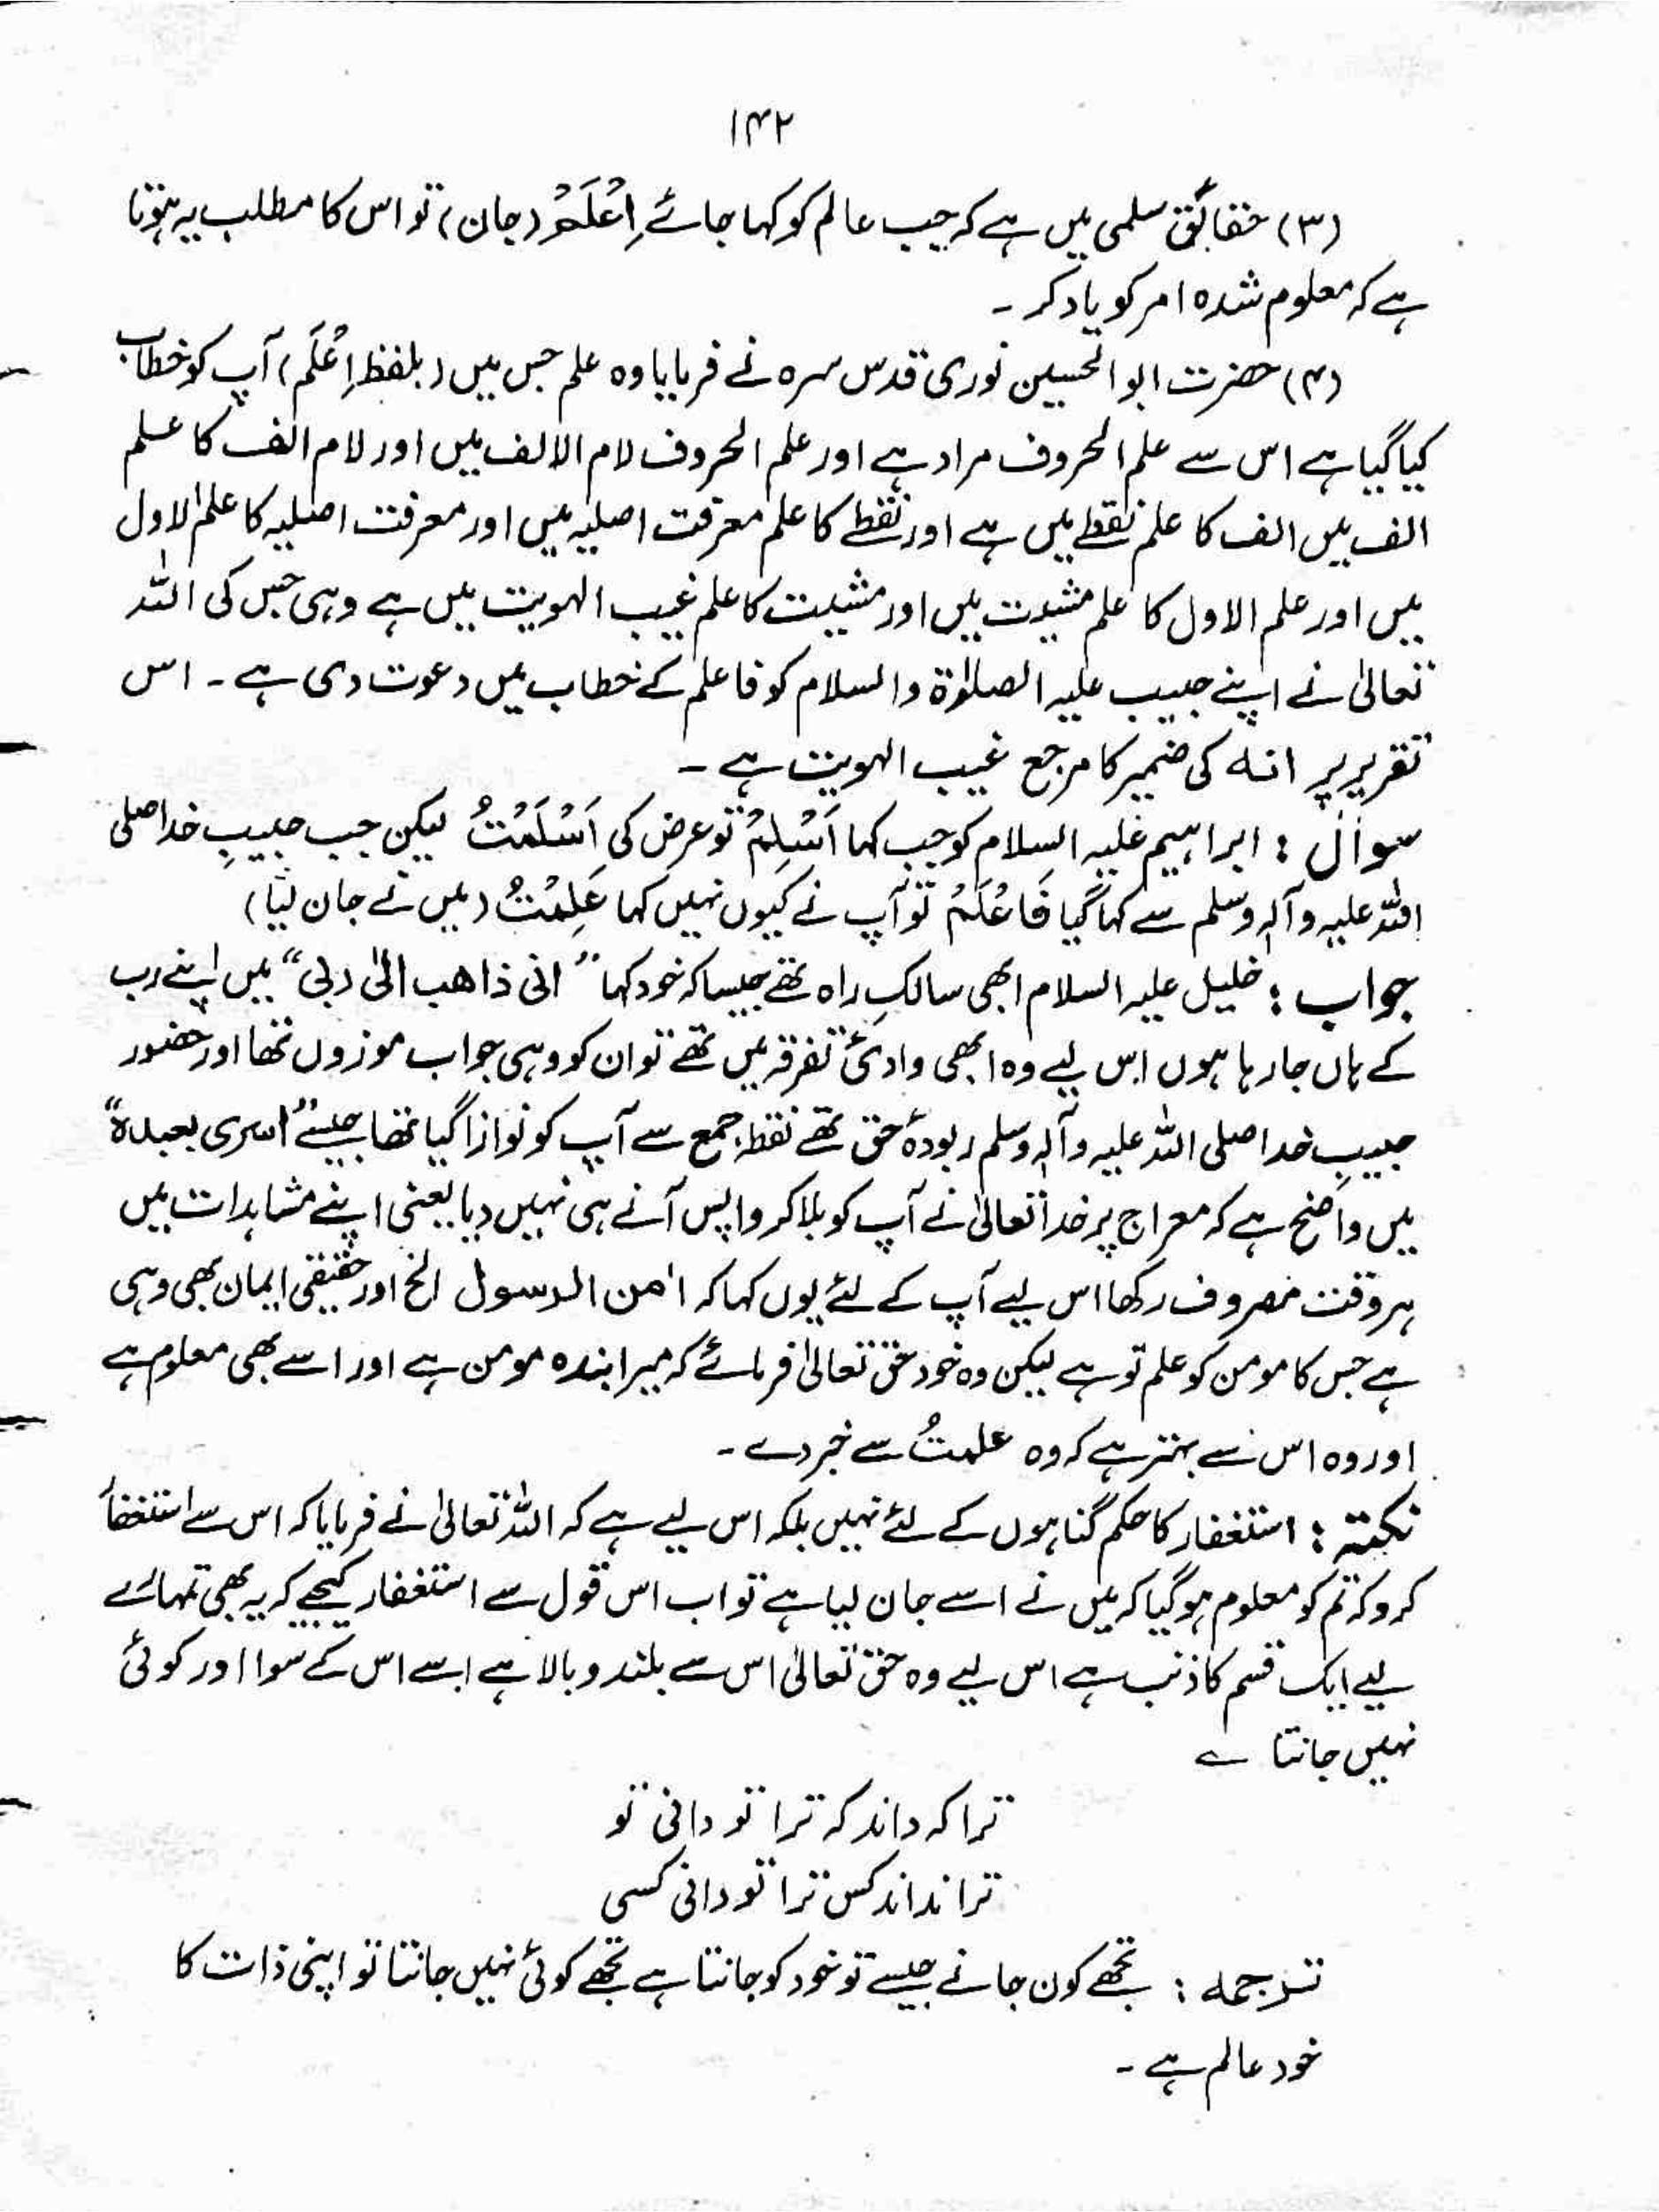 ۱۴۲
(۳) حقائق سلمی میں ہے کہ جب عالم کو کہا جائے اِعْلَمْ (جان) تو اس کا مطلب یہ ہوتا
ہے کہ معلوم شدہ امر کو یاد کر ۔
(۴) حضرت ابوالحسین نوری قدس سرہ نے فرمایا وہ علم جس میں (بلفظ اِعْلَم) آپ کو خطاب
کیا گیا ہے اس سے علم الحروف مراد ہے اور علم الحروف لام الالف میں اور لام الف کا علم
الف میں الف کا علم نقطے میں ہے اور نقطے کا علم معرفت اصلیہ میں اور معرفت اصلیہ کا علم الاول
میں اور علم الاول کا علم مشیت میں اور مشیت کا علم غیب الہویت میں ہے وہی جس کی اللہ
تعالیٰ نے اپنے حبیب علیہ الصلوٰۃ والسلام کو فاعلم کے خطاب میں دعوت دی ہے ۔ اس
تقریر پر انه کی ضمیر کا مرجع غیب الہویت ہے ۔
سوال : ابراہیم علیہ السلام کو جب کہا اَسْلِمْ تو عرض کی اَسْلَمْتُ لیکن جب حبیبِ خدا صلی
اللہ علیہ وآلہٖ وسلم سے کہا گیا فَاعْلَمْ تو آپ نے کیوں نہیں کہا عَلِمْتُ (میں نے جان لیا)
جواب : خلیل علیہ السلام ابھی سالکِ راہ تھے جیسا کہ خود کہا ” انی ذاھب الیٰ ربی “ میں اپنے رب
کے ہاں جا رہا ہوں اس لیے وہ ابھی وادیٔ تفرقہ میں تھے تو ان کو وہی جواب موزوں تھا اور حضور
حبیبِ خدا صلی اللہ علیہ وآلہٖ وسلم ربودۂ حق تھے نقطہ جمع سے آپ کو نوازا گیا تھا جیسے ”اسری بعبدہ“
میں واضح ہے کہ معراج پر خدا تعالیٰ نے آپ کو بلا کر واپس آنے ہی نہیں دیا یعنی اپنے مشاہدات میں
ہر وقت مصروف رکھا اس لیے آپ کے لئے یوں کہا کہ اٰمن الرسول الخ اور حقیقی ایمان بھی وہی
ہے جس کا مومن کو علم تو ہے لیکن وہ خود حق تعالیٰ فرمائے کہ میرا بندہ مومن ہے اور اسے بھی معلوم ہے
اور وہ اس سے بہتر ہے کہ وہ علمتُ سے خبر دے ۔
نکتہ : استغفار کا حکم گناہوں کے لئے نہیں بلکہ اس لیے ہے کہ اللہ تعالیٰ نے فرمایا کہ اس سے استغفار
کرو کہ تم کو معلوم ہو گیا کہ میں نے اسے جان لیا ہے تو اب اس قول سے استغفار کیجیے کہ یہ بھی تمہارے
لیے ایک قسم کا ذنب ہے اس لیے وہ حق تعالیٰ اس سے بلند و بالا ہے اسے اس کے سوا اور کوئی
نہیں جانتا ؎
ترا کہ داند کہ ترا تو دانی تو
ترا نداند کس ترا تو دانی کسی
ترجمہ : تجھے کون جانے جیسے تو خود کو جانتا ہے تجھے کوئی نہیں جانتا تو اپنی ذات کا
خود عالم ہے ۔